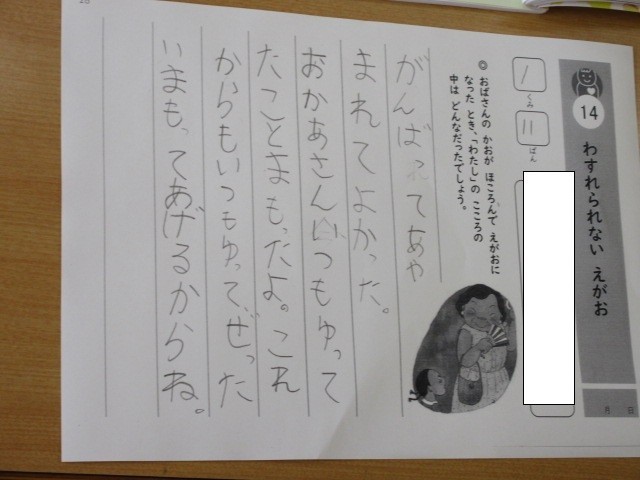 14
わすれられない えがお
月 日
1 くみ
11 ばん
◎ おばさんの かおが ほころんで えがおに
なった とき、「わたし」の こころの
中は どんなだったでしょう。
がんばってあや
まれてよかった。
おかあさんいつもゆって
たことまもったよ。これ
からもいつもゆって、ぜった
いまもってあげるからね。